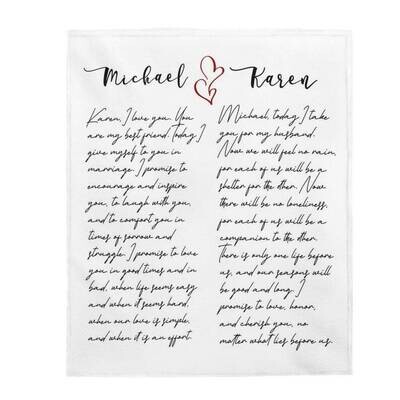 Michael Karen
Karen, I love you. You
are my best friend. Today I
give myself to you in
marriage. I promise to
encourage and inspire
you, to laugh with you,
and to comfort you in
times of sorrow and
struggle. I promise to love
you in good times and in
bad, when life seems easy
and when it seems hard,
when our love is simple,
and when it is an effort.
Michael, today I take
you for my husband.
Now we will feel no rain,
for each of us will be a
shelter for the other. Now
there will be no loneliness,
for each of us will be a
companion to the other.
There is only one life before
us, and our seasons will
be good and long. I
promise to love, honor,
and cherish you, no
matter what lies before us.